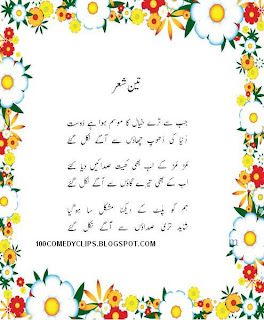 تین شعر
جب سے ترے خیال کا موسم ہوا ہے دوست
دُنیا کی دُھوپ چھاؤں سے آگے نکل گئے
مُڑ مُڑ کے اب بھی کھیت صدائیں دیا کئے
اب کے بھی تیرے گاؤں سے آگے نکل گئے
ہم کو پلٹ کے دیکھنا مشکل سا ہوگیا
شاید تری صداؤں سے آگے نکل گئے
100COMEDYCLIPS.BLOGSPOT.COM